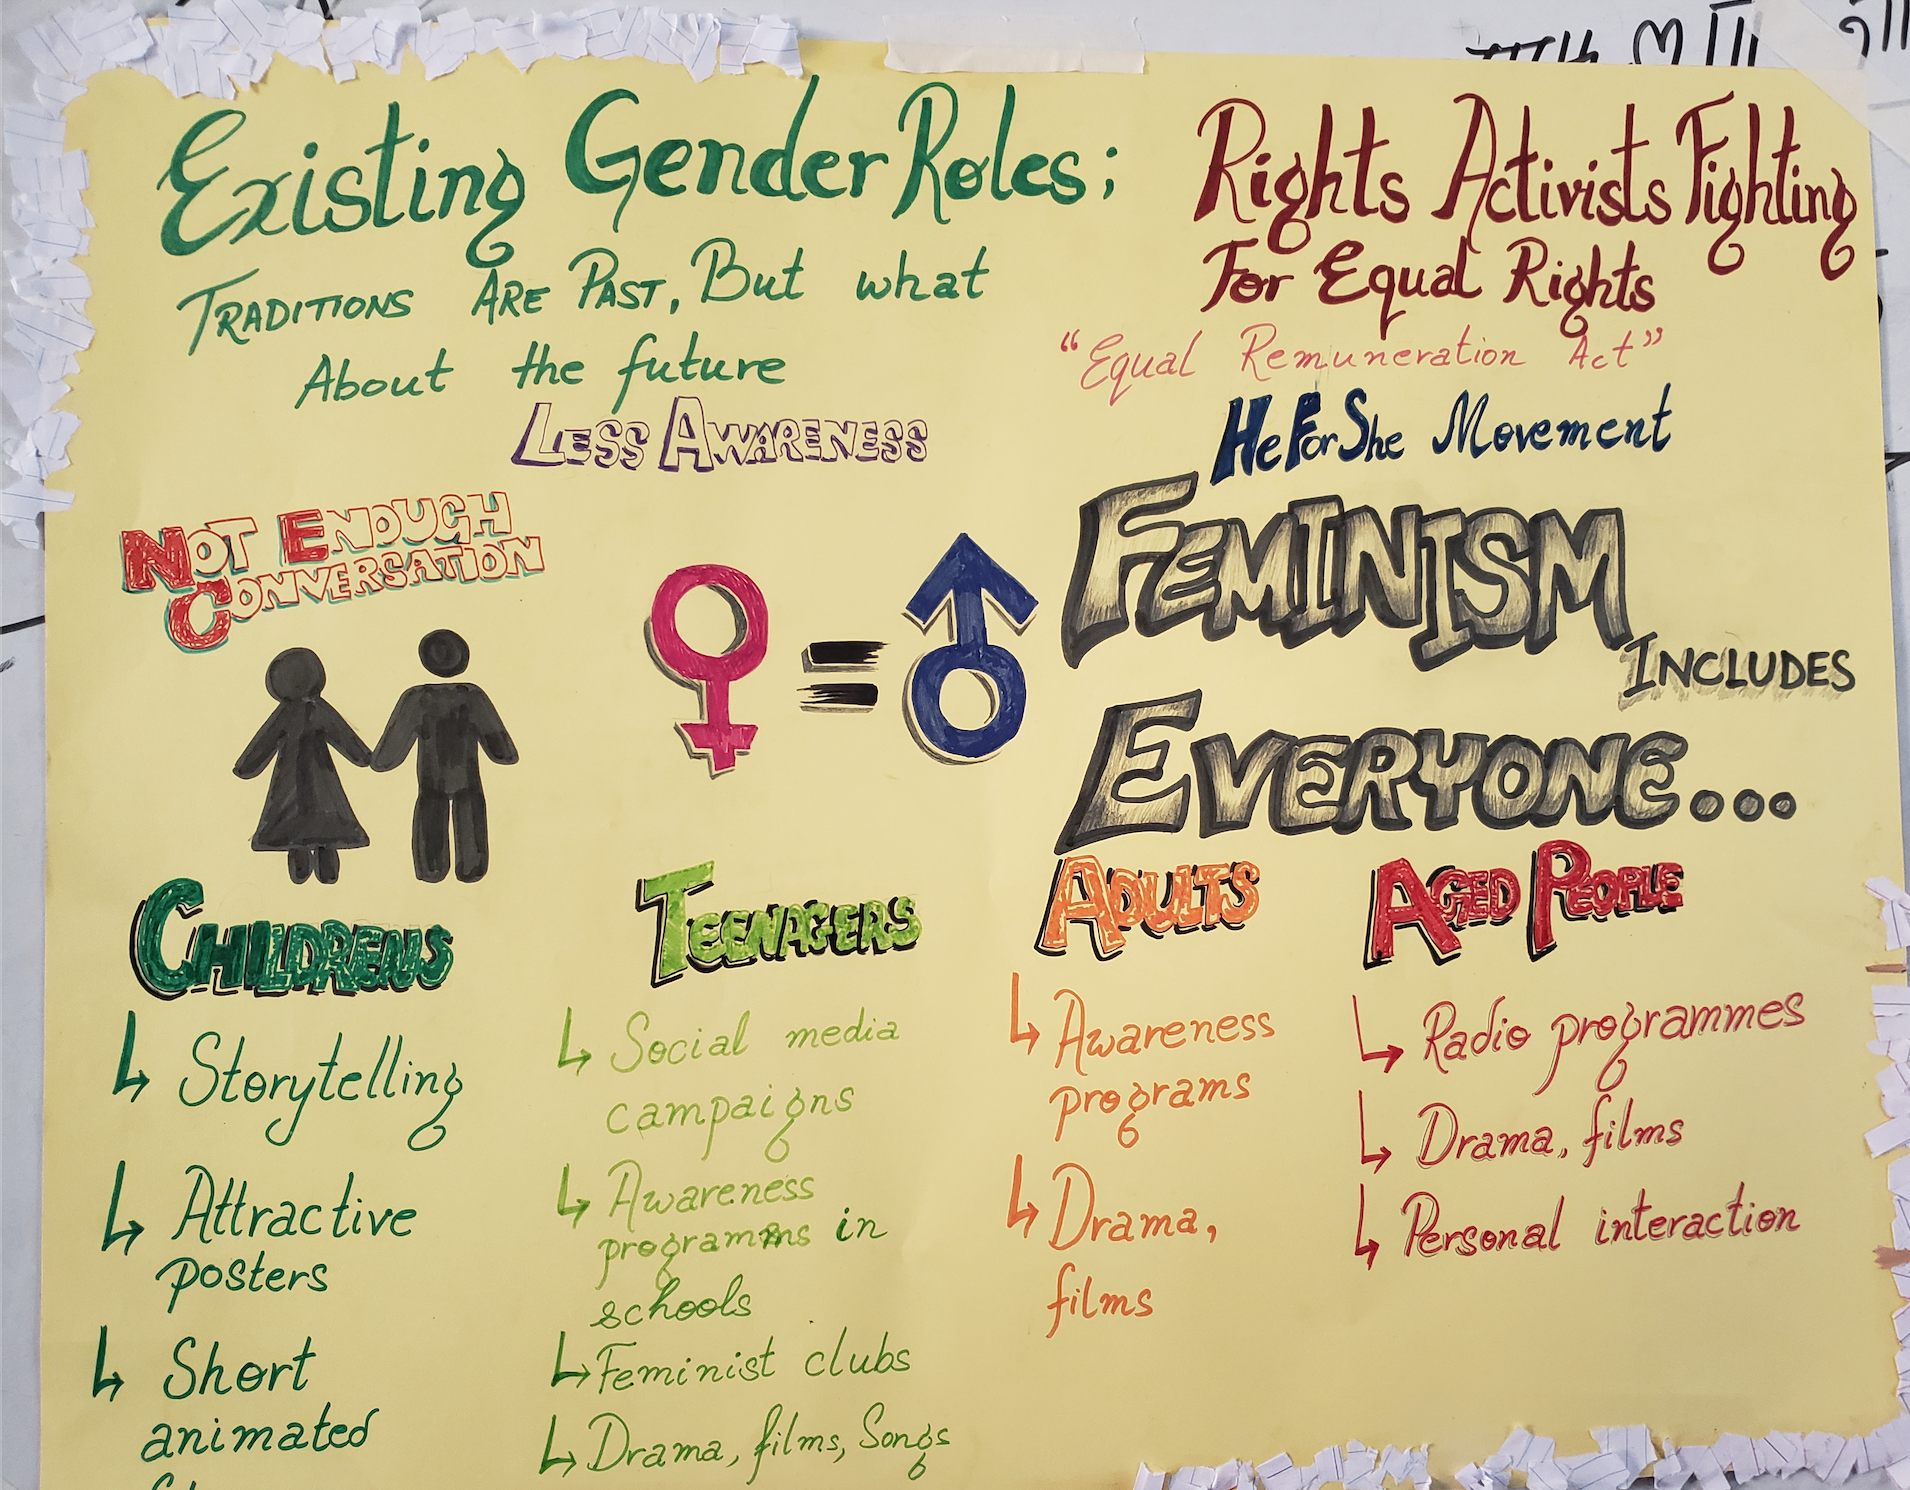 Existing Gender Roles;
TRADITIONS ARE PAST, But what
About the future
LESS AWARENESS
NOT ENOUGH
CONVERSATION
Rights Activists Fighting
For Equal Rights
"Equal Remuneration Act"
HeForShe Movement
FEMINISM
INCLUDES
EVERYONE...
CHILDRENS
↳ Storytelling
↳ Attractive
posters
↳ Short
animated
TEENAGERS
↳ Social media
campaigns
↳ Awareness
programms in
schools
↳ Feminist clubs
↳ Drama, films, Songs
ADULTS
↳ Awareness
programs
↳ Drama,
films
AGED PEOPLE
↳ Radio programmes
↳ Drama, films
↳ Personal interaction